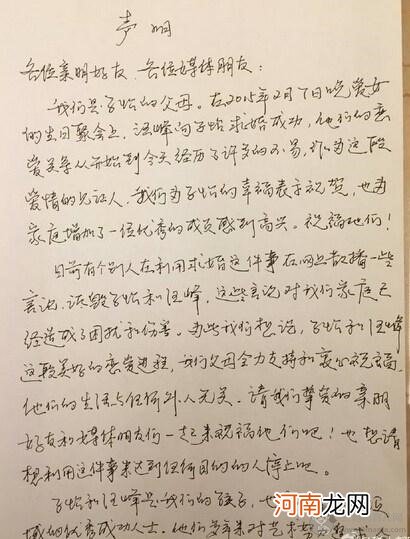 声明
各位亲朋好友、各位媒体朋友：
我们是子怡的父母。在2015年2月7日晚爱女
的生日聚会上，汪峰向子怡求婚成功，他们的恋
爱关系从开始到今天经历了许多的不易，作为这段
爱情的见证人，我们为子怡的幸福表示祝贺，也为
家庭增加了一位优秀的成员感到高兴。祝福他们！
目前有个别人在利用求婚这件事在网上散播一些
言论，诋毁子怡和汪峰，这些言论对我们家庭已
经造成了困扰和伤害。为此我们想说，子怡和汪峰
这段美好的恋爱进程，我们父母全力支持和衷心祝福，
他们的生活与任何外人无关，请我们挚爱的亲朋
好友和媒体朋友们一起来祝福他们吧！也想请
想利用这件事来达到任何目的的人停止吧。
子怡和汪峰是我们的孩子，也
域的优秀成功人士。他们多年来对艺术努力
河南龙网